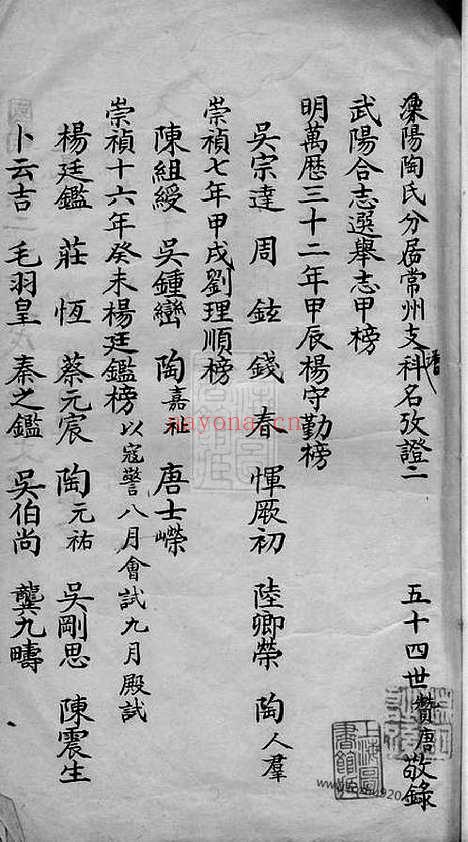 溧陽陶氏分居常州支譜科名攷證二 五十四世贊唐敬錄
武陽合志選舉志甲榜
明萬歷三十二年甲辰楊守勤榜
吳宗達 周鉉 錢春 惲厥初 陸卿榮 陶人羣
崇禎七年甲戌劉理順榜
陳組綬 吳鍾巒 陶嘉祉 唐士嶸
崇禎十六年癸未楊廷鑑榜 以寇警八月會試九月殿試
楊廷鑑 莊恆 蔡元宸 陶元祐 吳剛思 陳震生
卜云吉 毛羽皇 秦之鑑 吳伯尚 龔九疇
nayona.cn
上海圖書館藏